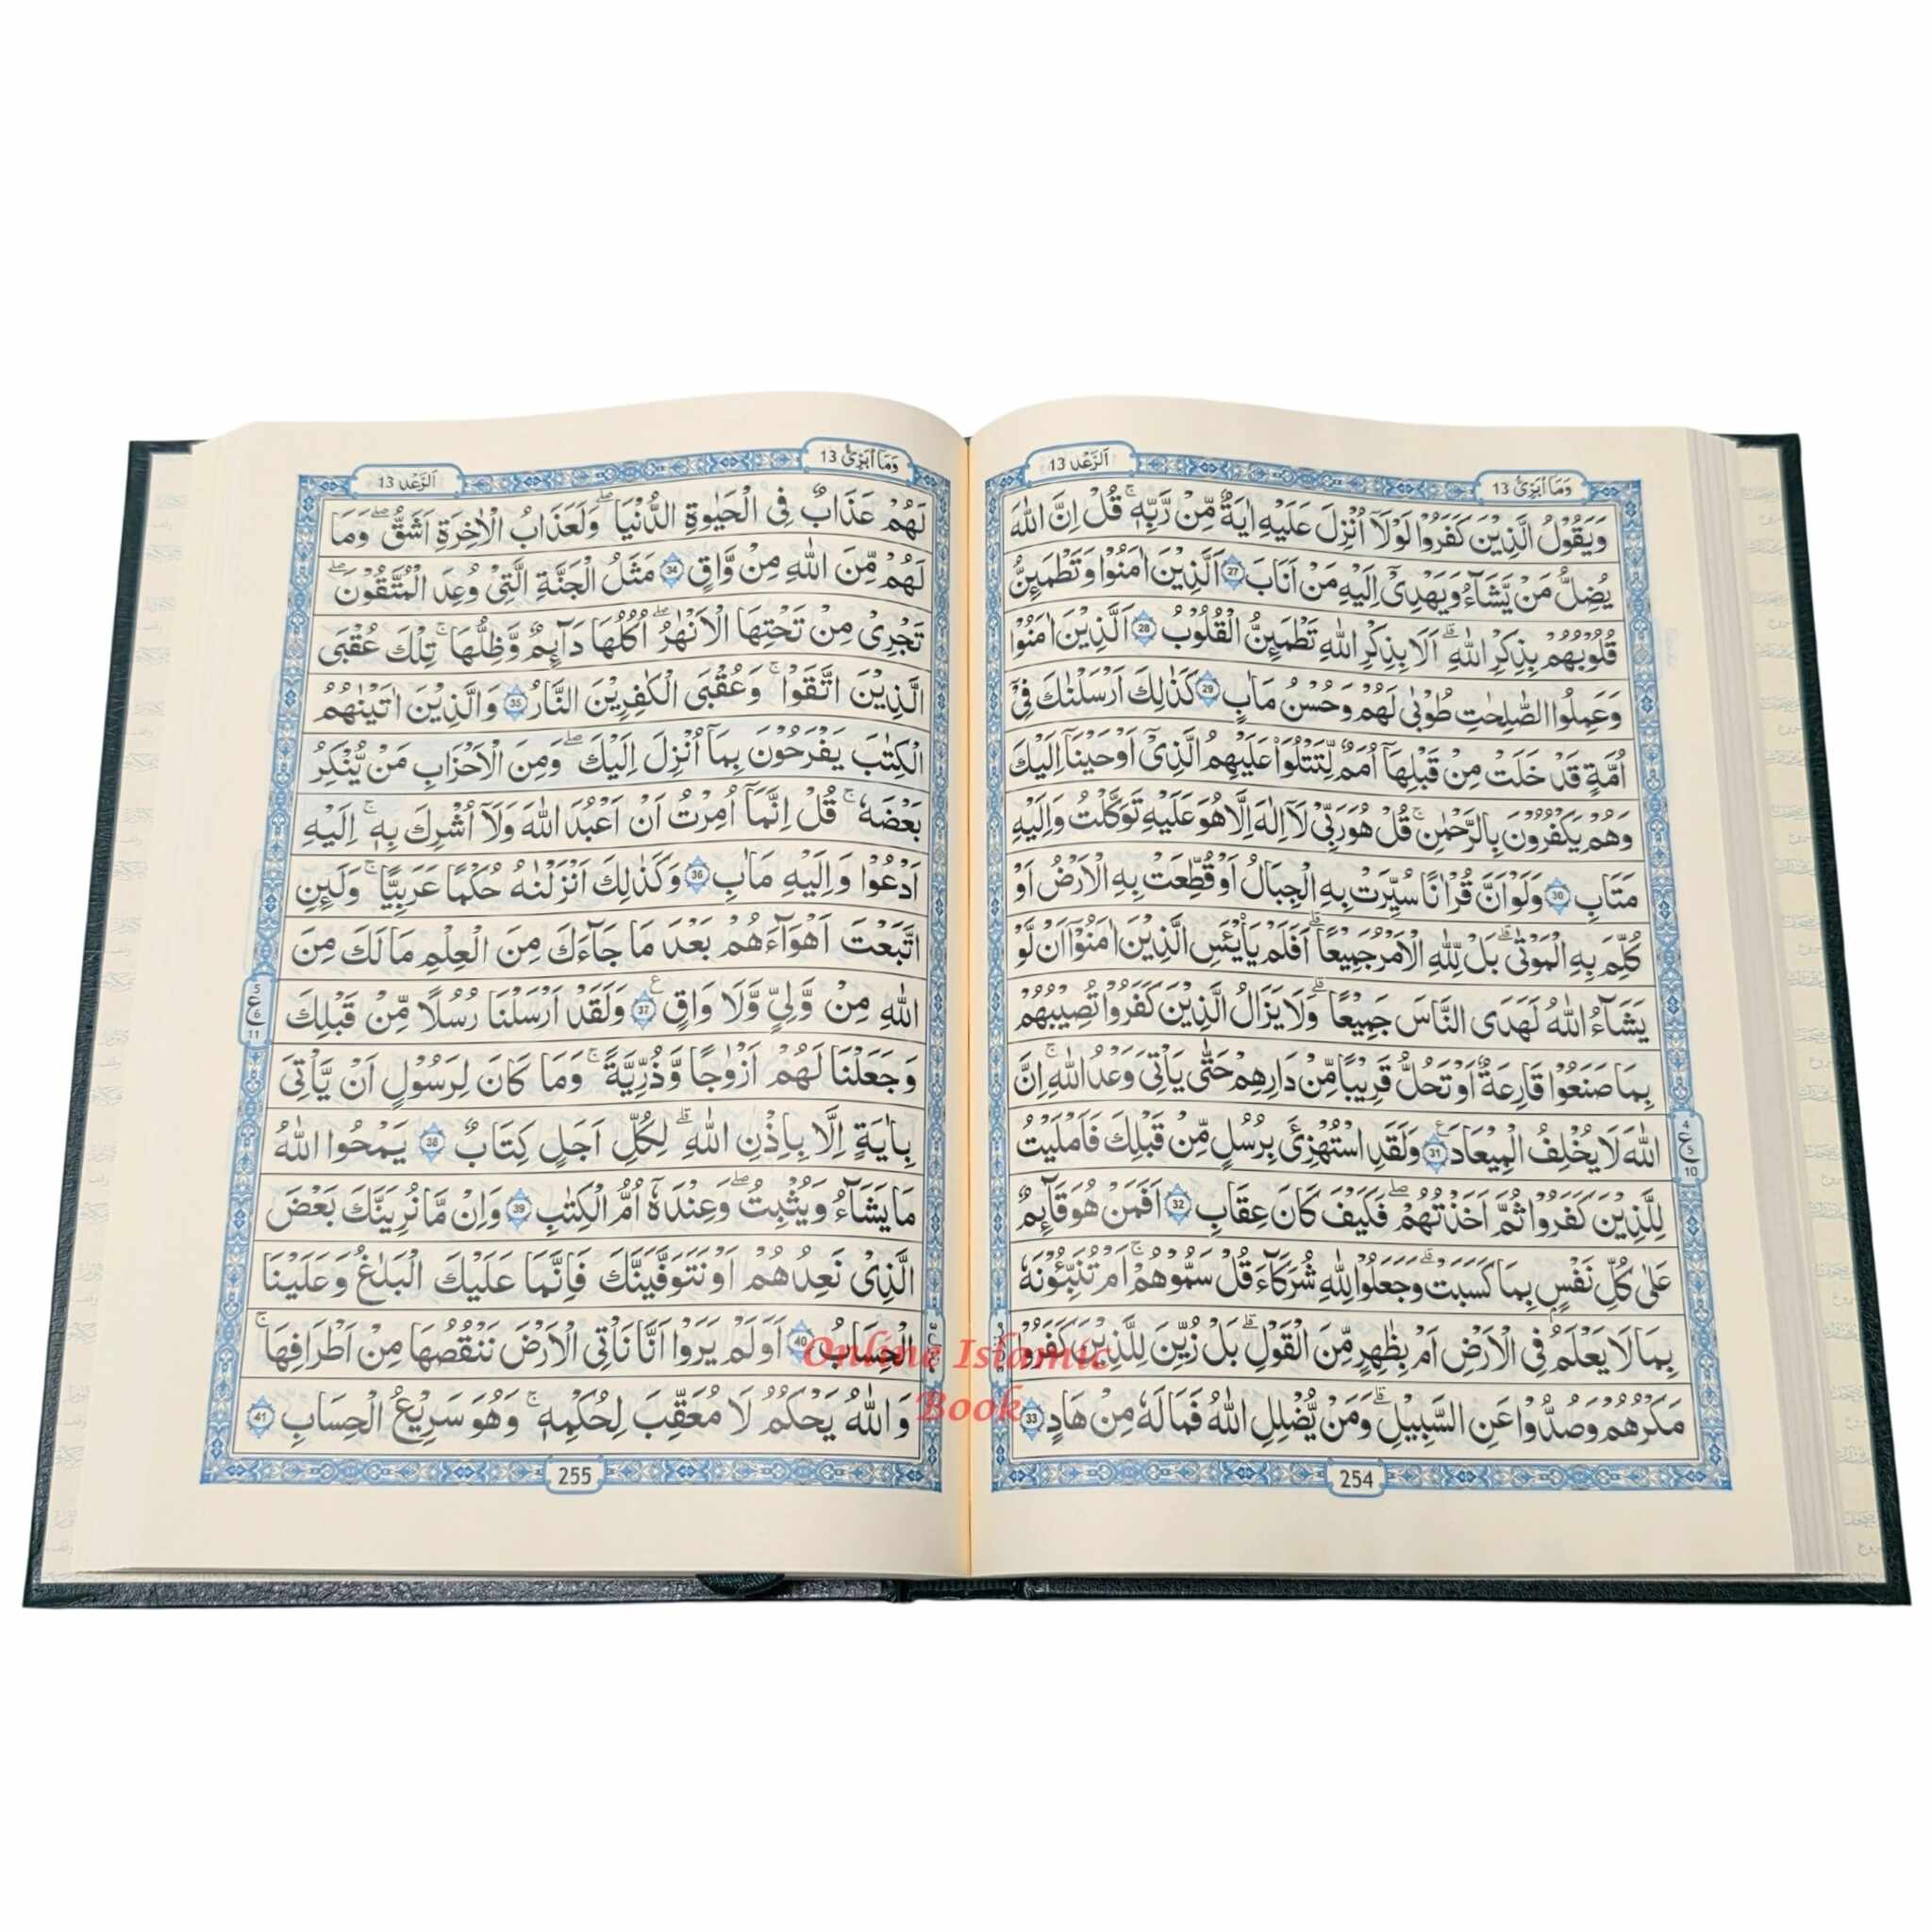 وَمَآ اُبَرِّئُ 13
اَلرَّعْد 13
وَيَقُوْلُ الَّذِيْنَ كَفَرُوْا لَوْلَآ اُنْزِلَ عَلَيْهِ اٰيَةٌ مِّنْ رَّبِّهٖ ۚ قُلْ اِنَّ اللّٰهَ
يُضِلُّ مَنْ يَّشَآءُ وَيَهْدِيْٓ اِلَيْهِ مَنْ اَنَابَ 27 اَلَّذِيْنَ اٰمَنُوْا وَتَطْمَئِنُّ
قُلُوْبُهُمْ بِذِكْرِ اللّٰهِ ۗ اَلَا بِذِكْرِ اللّٰهِ تَطْمَئِنُّ الْقُلُوْبُ 28 اَلَّذِيْنَ اٰمَنُوْا
وَعَمِلُوا الصّٰلِحٰتِ طُوْبٰى لَهُمْ وَحُسْنُ مَاٰبٍ 29 كَذٰلِكَ اَرْسَلْنٰكَ فِيْٓ
اُمَّةٍ قَدْ خَلَتْ مِنْ قَبْلِهَآ اُمَمٌ لِّتَتْلُوَا۟ عَلَيْهِمُ الَّذِيْٓ اَوْحَيْنَآ اِلَيْكَ
وَهُمْ يَكْفُرُوْنَ بِالرَّحْمٰنِ ۚ قُلْ هُوَ رَبِّيْ لَآ اِلٰهَ اِلَّا هُوَ عَلَيْهِ تَوَكَّلْتُ وَاِلَيْهِ
مَتَابِ 30 وَلَوْ اَنَّ قُرْاٰنًا سُيِّرَتْ بِهِ الْجِبَالُ اَوْ قُطِّعَتْ بِهِ الْاَرْضُ اَوْ
كُلِّمَ بِهِ الْمَوْتٰى ۗ بَلْ لِّلّٰهِ الْاَمْرُ جَمِيْعًا ۗ اَفَلَمْ يَا۟يْـَٔسِ الَّذِيْنَ اٰمَنُوْٓا اَنْ لَّوْ
يَشَآءُ اللّٰهُ لَهَدَى النَّاسَ جَمِيْعًا ۗ وَلَا يَزَالُ الَّذِيْنَ كَفَرُوْا تُصِيْبُهُمْ
بِمَا صَنَعُوْا قَارِعَةٌ اَوْ تَحُلُّ قَرِيْبًا مِّنْ دَارِهِمْ حَتّٰى يَأْتِيَ وَعْدُ اللّٰهِ ۚ اِنَّ
اللّٰهَ لَا يُخْلِفُ الْمِيْعَادَ 31 وَلَقَدِ اسْتُهْزِئَ بِرُسُلٍ مِّنْ قَبْلِكَ فَاَمْلَيْتُ
لِلَّذِيْنَ كَفَرُوْا ثُمَّ اَخَذْتُهُمْ ۖ فَكَيْفَ كَانَ عِقَابِ 32 اَفَمَنْ هُوَ قَآئِمٌ
عَلٰى كُلِّ نَفْسٍ بِمَا كَسَبَتْ ۗ وَجَعَلُوْا لِلّٰهِ شُرَكَآءَ قُلْ سَمُّوْهُمْ ۚ اَمْ تُنَبِّـُٔوْنَهٗ
بِمَا لَا يَعْلَمُ فِي الْاَرْضِ اَمْ بِظَاهِرٍ مِّنَ الْقَوْلِ ۗ بَلْ زُيِّنَ لِلَّذِيْنَ كَفَرُوْا
مَكْرُهُمْ وَصُدُّوْا عَنِ السَّبِيْلِ ۗ وَمَنْ يُّضْلِلِ اللّٰهُ فَمَا لَهٗ مِنْ هَادٍ 33
4
ع
5
10
254
وَمَآ اُبَرِّئُ 13
اَلرَّعْد 13
لَهُمْ عَذَابٌ فِي الْحَيٰوةِ الدُّنْيَا ۖ وَلَعَذَابُ الْاٰخِرَةِ اَشَقُّ ۖ وَمَا
لَهُمْ مِّنَ اللّٰهِ مِنْ وَّاقٍ 34 مَثَلُ الْجَنَّةِ الَّتِيْ وُعِدَ الْمُتَّقُوْنَ ۖ
تَجْرِيْ مِنْ تَحْتِهَا الْاَنْهٰرُ ۖ اُكُلُهَا دَآئِمٌ وَّظِلُّهَا ۚ تِلْكَ عُقْبَى
الَّذِيْنَ اتَّقَوْا ۚ وَعُقْبَى الْكٰفِرِيْنَ النَّارُ 35 وَالَّذِيْنَ اٰتَيْنٰهُمُ
الْكِتٰبَ يَفْرَحُوْنَ بِمَآ اُنْزِلَ اِلَيْكَ ۖ وَمِنَ الْاَحْزَابِ مَنْ يُّنْكِرُ
بَعْضَهٗ ۚ قُلْ اِنَّمَآ اُمِرْتُ اَنْ اَعْبُدَ اللّٰهَ وَلَآ اُشْرِكَ بِهٖ ۚ اِلَيْهِ
اَدْعُوْا وَاِلَيْهِ مَاٰبِ 36 وَكَذٰلِكَ اَنْزَلْنٰهُ حُكْمًا عَرَبِيًّا ۚ وَلَئِنِ
اتَّبَعْتَ اَهْوَآءَهُمْ بَعْدَ مَا جَآءَكَ مِنَ الْعِلْمِ مَا لَكَ مِنَ
اللّٰهِ مِنْ وَّلِيٍّ وَّلَا وَاقٍ 37 وَلَقَدْ اَرْسَلْنَا رُسُلًا مِّنْ قَبْلِكَ
وَجَعَلْنَا لَهُمْ اَزْوٰجًا وَّذُرِّيَّةً ۚ وَمَا كَانَ لِرَسُوْلٍ اَنْ يَّأْتِيَ
بِاٰيَةٍ اِلَّا بِاِذْنِ اللّٰهِ ۗ لِكُلِّ اَجَلٍ كِتَابٌ 38 يَمْحُوا اللّٰهُ
مَا يَشَآءُ وَيُثْبِتُ ۖ وَعِنْدَهٗٓ اُمُّ الْكِتٰبِ 39 وَاِنْ مَّا نُرِيَنَّكَ بَعْضَ
الَّذِيْ نَعِدُهُمْ اَوْ نَتَوَفَّيَنَّكَ فَاِنَّمَا عَلَيْكَ الْبَلٰغُ وَعَلَيْنَا
الْحِسَابُ 40 اَوَلَمْ يَرَوْا اَنَّا نَأْتِي الْاَرْضَ نَنْقُصُهَا مِنْ اَطْرَافِهَا ۚ
وَاللّٰهُ يَحْكُمُ لَا مُعَقِّبَ لِحُكْمِهٖ ۚ وَهُوَ سَرِيْعُ الْحِسَابِ 41
5
ع
6
11
255
Online Islamic
Book